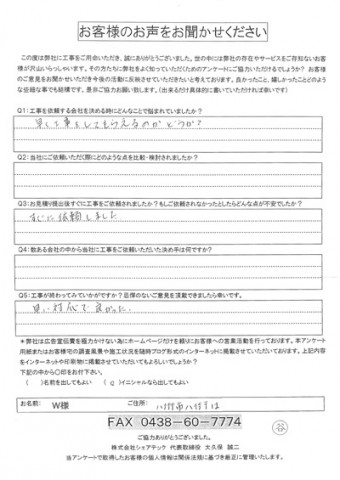 お客様のお声をお聞かせください
この度は弊社に工事をご用命いただき、誠にありがとうございます。世の中には弊社の存在やサービスをご存知ないお客様
が沢山いらっしゃいます。その方たちに弊社をよく知っていただくためのアンケートにご協力いただけるでしょうか? お客様
のご意見をお聞かせいただき今後の活動に反映させていただきたいと考えております。良かったこと、嬉しかったことどのよう
な些細な事でも結構です。是非ご協力お願い致します。(出来るだけ具体的に書いていただければ幸いです)
Q1:工事を依頼する会社を決める時にどんなことで悩まれていましたか?
早く工事をしてもらえるのかどうか?
Q2:当社にご依頼いただく際にどのような点を比較・検討されましたか?
Q3:お見積り提出後すぐに工事をご依頼されましたか?もしご依頼されなかったとしたらどんな点が不安でしたか?
すぐに依頼しました
Q4:数ある会社の中から当社に工事をご依頼いただいた決め手は何ですか?
Q5:工事が終わってみていかがですか?忌憚のないご意見を頂戴できましたら幸いです。
早い対応で良かった。
*弊社では広告宣伝費を極力かけない為にホームページだけを頼りにお客様への営業活動を行っております。本アンケート
用紙またはお客様宅の調査風景や施工状況を随時ブログ形式のインターネットに掲載させていただいております。上記内容
をインターネットや印刷物に掲載させていただいてもよろしいでしょうか?
下記の中から〇印をお付け下さい。
( )名前を出してもよい (○)イニシャルなら出してもよい
お名前: W様 ご住所:
FAX 0438-60-7774
ご協力ありがとうございました。
株式会社シェアテック 代表取締役 大久保 誠二
当アンケートで取得したお客様の個人情報は関係法規に基づき厳正に管理いたします。